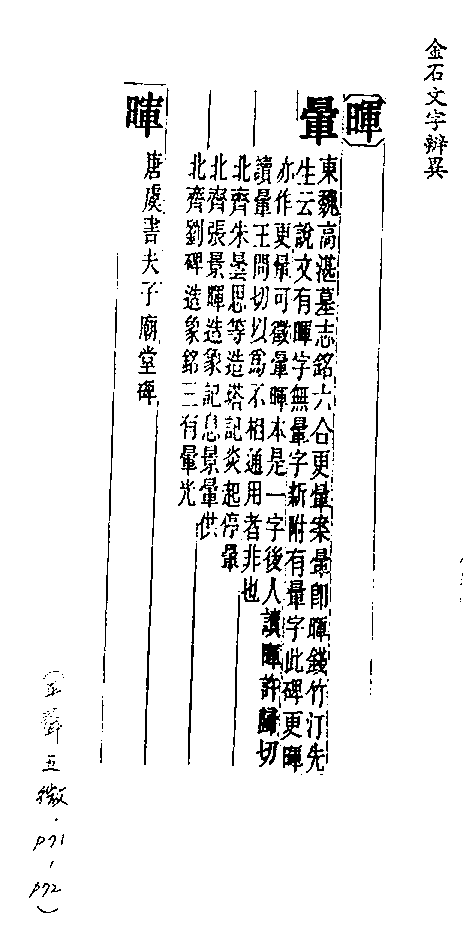 金石文字辨異
暉
暈
東魏高湛墓志銘六合更暈案暈即暉錢竹汀先
生云說文有暉字無暈字新附有暈字此碑更暉
亦作更暈可徵暈暉本是一字後人讀暉許歸切
讀暈王問切以為不相通用者非也
北齊朱曇思等造塔記炎起停暈
北齊張景暉造象記息景暈供
北齊劉碑造象銘三有暈光
暉
唐虞書夫子廟堂碑
(金辨五微·P71-P72)